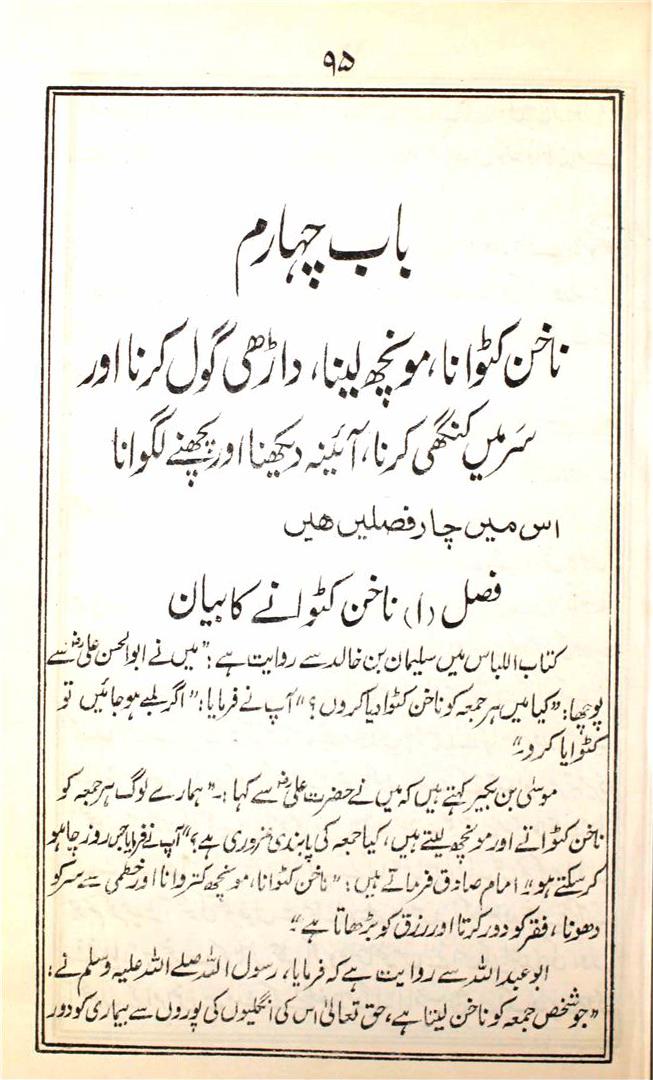 ۹۵
باب چہارم
ناخن کٹوانا، مونچھ لینا، داڑھی گول کرنا اور
سَر میں کنگھی کرنا، آئینہ دیکھنا اور پچھنے لگوانا
اس میں چار فصلیں ھیں
فصل (۱) ناخن کٹوانے کا بیان
کتاب اللباس میں سلیمان بن خالد سے روایت ہے: "میں نے ابوالحسن علیؓ سے
پوچھا: "کیا میں ہر جمعہ کو ناخن کٹوا دیا کروں؟" آپ نے فرمایا: "اگر لمبے ہو جائیں تو
کٹوایا کرو۔"
موسیٰ بن بکیر کہتے ہیں کہ میں نے حضرت علیؓ سے کہا :۔ "ہمارے لوگ ہر جمعہ کو
ناخن کٹواتے اور مونچھ لیتے ہیں، کیا جمعہ کی پابندی ضروری ہے؟" آپ نے فرمایا جس روز چاہو
کر سکتے ہو" امام صادق فرماتے ہیں: "ناخن کٹوانا، مونچھ کتروانا اور خطمی سے سر کو
دھونا، فقر کو دور کرتا اور رزق کو بڑھاتا ہے۔"
ابو عبداللہ سے روایت ہے کہ فرمایا، رسول اللہ صلے اللہ علیہ وسلم نے:
"جو شخص جمعہ کو ناخن لیتا ہے، حق تعالیٰ اس کی انگلیوں کی پوروں سے بیماری کو دور